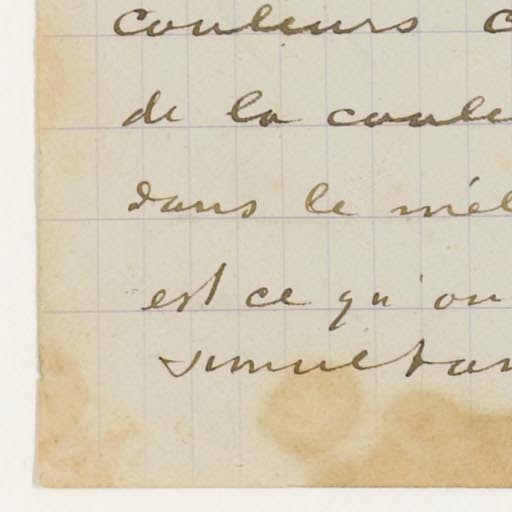 couleurs c
de la coule
dans le mél
est ce qu'on
simultan